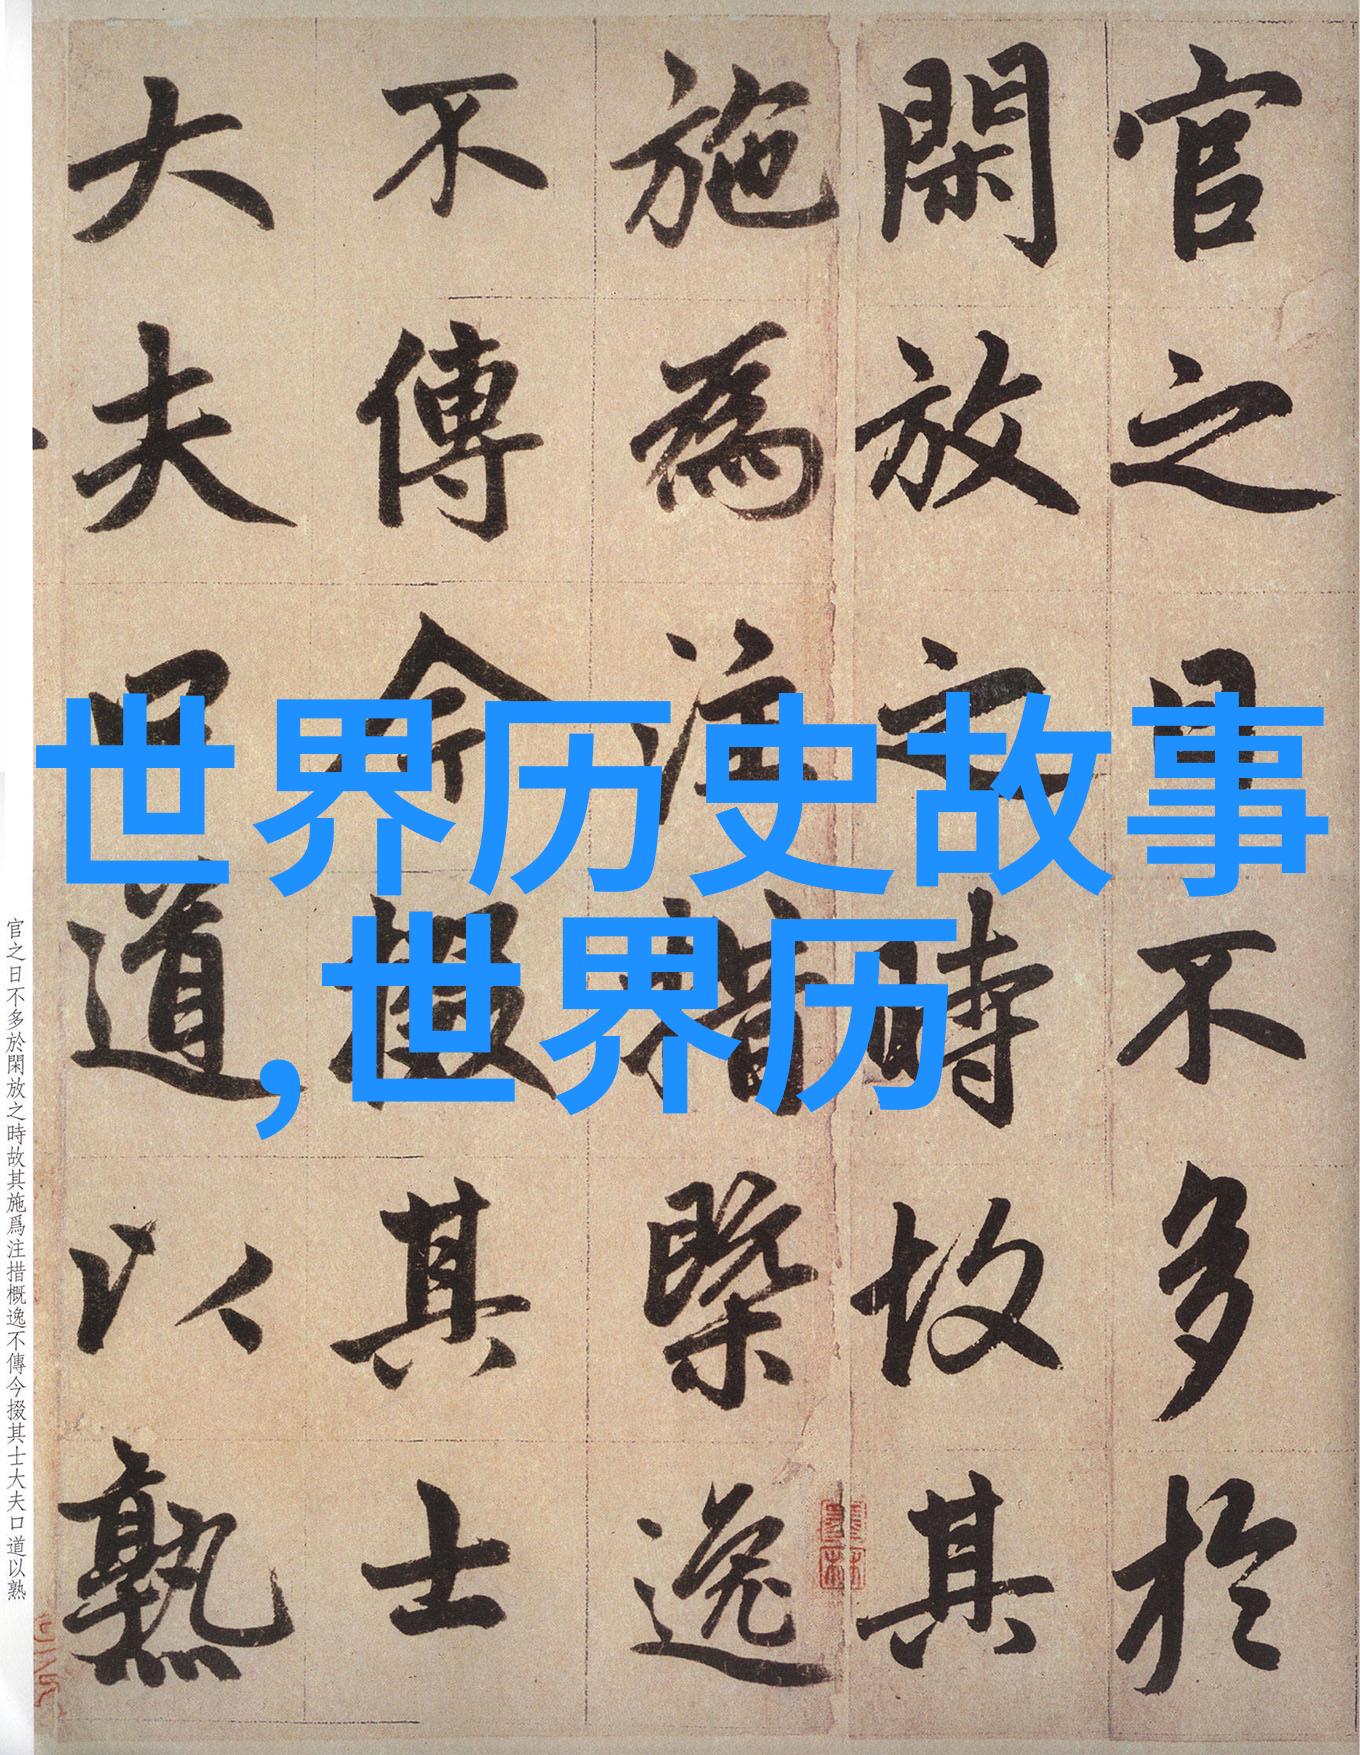 官之日不多於
閑放之時故其
施為注措槩逸
不傳今掇其士
大夫口道以熟
世界历史故事
,世界历
官之日不多於閑放之時故其施爲注措概逸不傳今掇其士大夫口道以熟